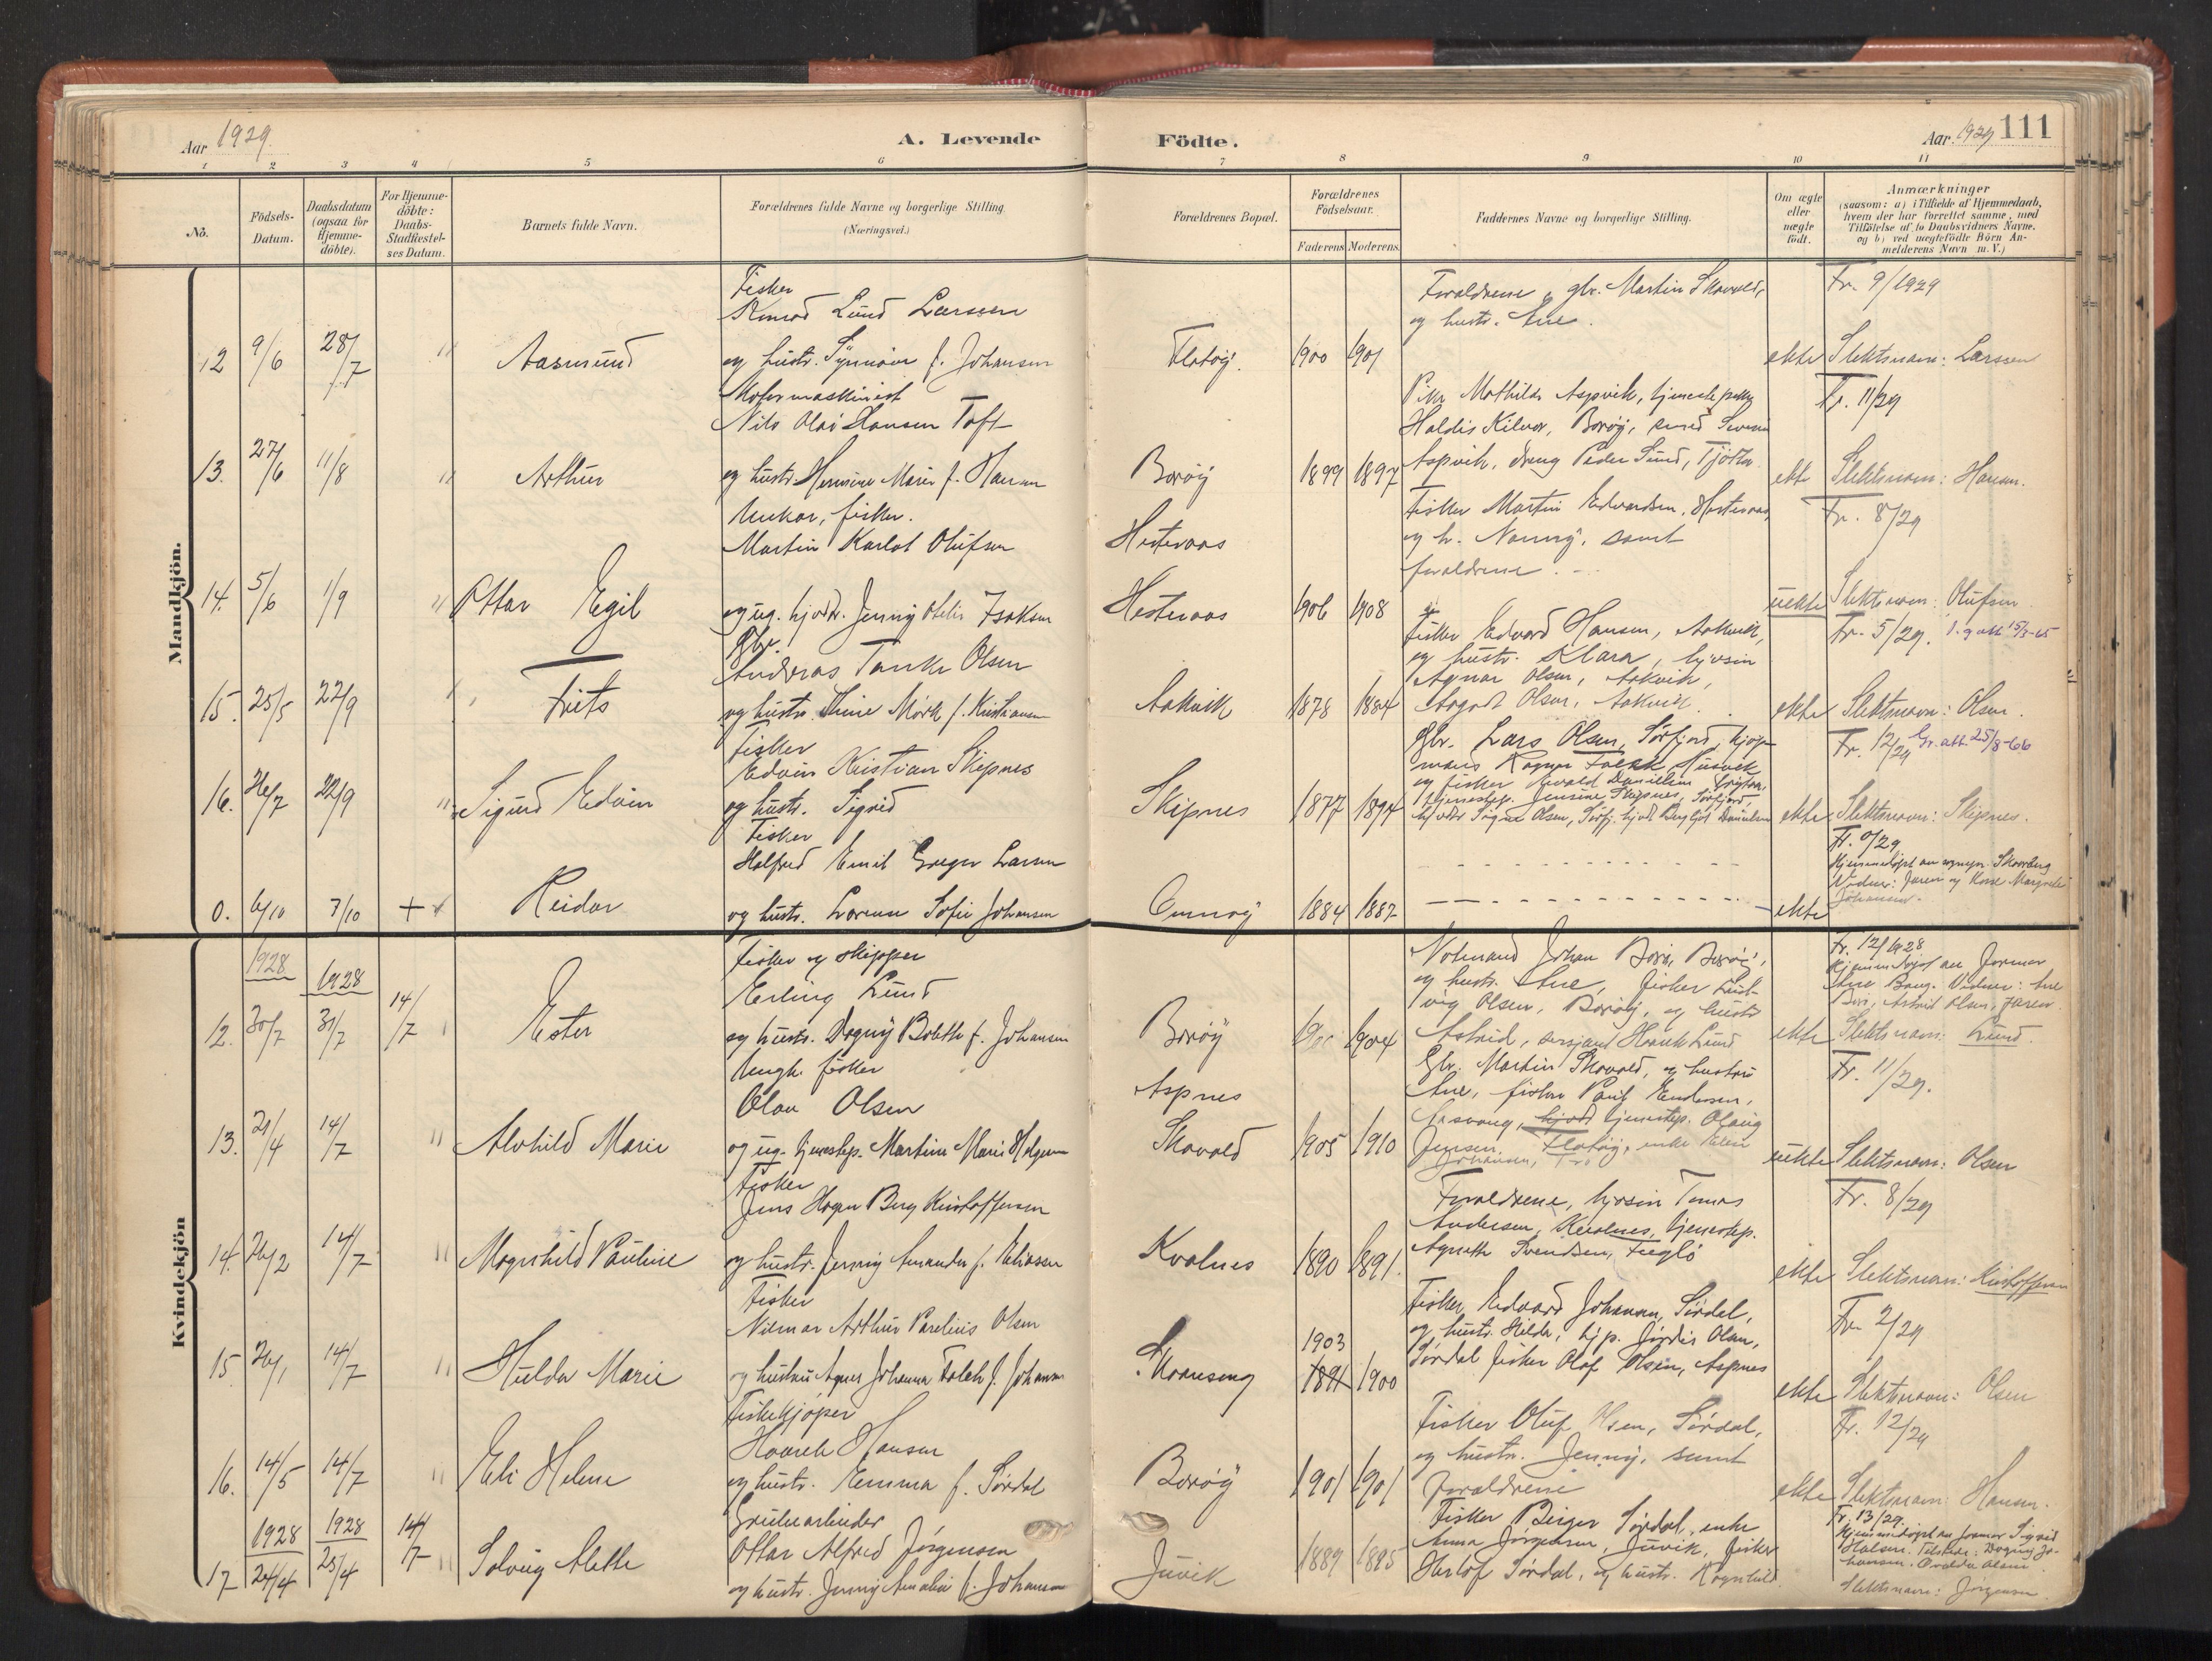 Aar 1929.
A. Levende
Födte.
Aar 1929
111
1 2 3 4 5 6 7 8 9 10 11
Nô.
Födsels-
Datum.
Daabsdatum
(ogsaa for
Hjemme-
döbte).
For Hjemme-
döbte:
Daabs-
Stadfæstel-
ses Datum.
Barnets fulde Navn.
Forældrenes fulde Navne og borgerlige Stilling.
(Næringsvei.)
Forældrenes Bopæl.
Forældrenes
Födselsaar.
Faderens
Moderens
Faddernes Navne og borgerlige Stilling.
Om ægte
eller
uægte
födt.
Anmærkninger
(saasom: a) i Tilfælde af Hjemmedaab,
hvem der har forrettet samme, med
Tilföielse af to Daabsvidners Navne,
og b) ved uægtefödte Börn An-
melderens Navn m. V.)
Mandkjön.
12
9/6
28/7
"
Aasmund
Fisker
Konrad Lund Larssen
og hustr. Synnöve f. Johansen
Flatöy.
1900
1901
Foraldrene, gbr. Martin Skavold,
og hustr. Ane.
ekte
Fr. 9/1929
Slektsnavn: Larssen
13.
27/6
11/8
"
Arthur
Motormaskinist
Nils Olai Hansen Toft
og hustr. Hermine Marie f. Hansen
Boröy
1899
1897
Pike Mathilde Aspvik, tjenestepike
Haldis Kilvær, Boröy, smed
Aspvik, dreng Peder Sund, Tjötta
ekte
Fr. 11/29
Slektsnavn: Hansen.
14.
5/6
1/9
"
Ottar Egil
Unkar, fisker.
Martin Karlot Olufsen
og ug. hjvdtr. Jenny Otelie Isaksen
Hestevaas
Hestevaas
1906
1908
Fisker Martin Edvardsen, Hestevaas,
og h. Nanny, samt
foraldrene.
uekte
Fr. 8/29
Slektsnavn: Olufsen
15.
25/5
22/9
"
Frits
Gbr.
Andreas Tanke Olsen
og hustr. Stine Mörk f. Kristiansen
Aakvik
1878
1884
Fisker Edvard Hansen, Aakvik,
og hustr. Klara, hjvsön
Agnar Olsen, Aakvik,
Aagot Olsen, Aakvik.
ekte
Fr. 5/29. 15/3-65
Slektsnavn: Olsen.
16.
26/7
22/9
"
Sigurd Edvin
Fisker
Edvin Kristian Skipnes
og hustr. Sigrid
Skipnes
1877
1894
Gbr. Lars Olsen, Sörfjord, kjöp-
mann Ragnv. Falck Husvik
og fisker Evald Danielsen
tjenestep. Jensine Skipnes, Sörfjord,
hjvdtr Signe Olsen, Sörfj. hjvdt. Bergljot Danielsen
ekte
Fr. 12/29 Gr. att. 25/8-66
Slektsnavn: Skipnes.
0.
6/10
7/10
+
Reidar
Fisker
Halfred Emil Greger Larsen
og hustr. Lorense Sofie Johansen
Omnöy
1884
1887
ekte
Fr. 0/29
Hjemmedöpt av sognepr. Skovberg
Vidner: Jaren og Kone Margrete
Johansen.
Kvindekjön
12.
1928
30/7
1928
31/7
14/7
Ester
Fisker og skipper
Erling Lund
og hustr. Dagny Bolette f. Johansen
Boröy
1904
Notmand Johan Borö, Boröy,
og hustr. Ane, fisker Lud-
vig Olsen, Boröy, og hustr
Astrid, sersjant Henrik Lund
ekte
Fr. 12/1928
Hjemmedöpt av Jormor
Ane Bang. Vidner: Ane
Borö, Astrid Olsen, faren
Slektsnavn: Lund.
13.
21/4
14/7
"
Alvhild Marie
Ungk. fisker
Olav Olsen
og ug. tjenestep. Martine Marie Helgesen
Aspnes
Skavold
1905
1910
Gbr. Martin Skavold, og hustru
Ane, fisker Paul Endresen,
tjenestep. Olaug
Jensen, Flatöy, enke Elen
Johansen,
uekte
Fr. 11/29.
Slektsnavn: Olsen
14.
26/2
14/7
"
Magnhild Pauline
Fisker
Jens Hagen Berg Kristoffersen
og hustr. Jenny Amanda f. Eliassen
Kvalnes
1890
1891.
Foraldrene, hjvsön Tomas
Andersen, Kvalnes, tjenestep.
Agnete Svendsen, Fuglö
ekte
Fr. 8/29
Slektsnavn: Kristoffersen
15
26/1
14/7
"
Hulda Marie
Fisker
Nilmar Arthur Parelius Olsen
og hustru Agnes Johanna Falch f. Johansen
Skarseng
1903
1891
1900
Fisker Edvard Johansen, Sördal,
og hustr. Hilda, hjp. Jördis Olsen,
Sördal fisker Olaf Olsen, Aspnes
ekte
Fr. 2/29
Slektsnavn: Olsen
16.
14/5
14/7
"
Eli Helene
Fiskekjöper
Haarek Hansen
og hustr. Emma f. Sördal
Boröy
1901
1901
Fisker Oluf Olsen, Sördal,
og hustr. Jenny, samt
Foraldrene
ekte
Fr. 12/29
Slektsnavn: Hansen.
17
1928
24/4
1928
25/4
14/7
"
Solveig Alette
Grubearbeider
Ottar Alfred Jörgensen
og hustr. Jenny Amalie f. Johansen
Juvik
1889
1885
Fisker Birger Sördal, enke
Anna Jörgensen, Juvik, fisker
Herlof Sördal, og hustr. Ragnhild
Fr. 13/29.
Hjemmedöpt av Jormor Sigrid
Halsen. Tilstede: Dagny Jo-
hansen, Ovedia Olsen
Slektsnavn: Jörgensen